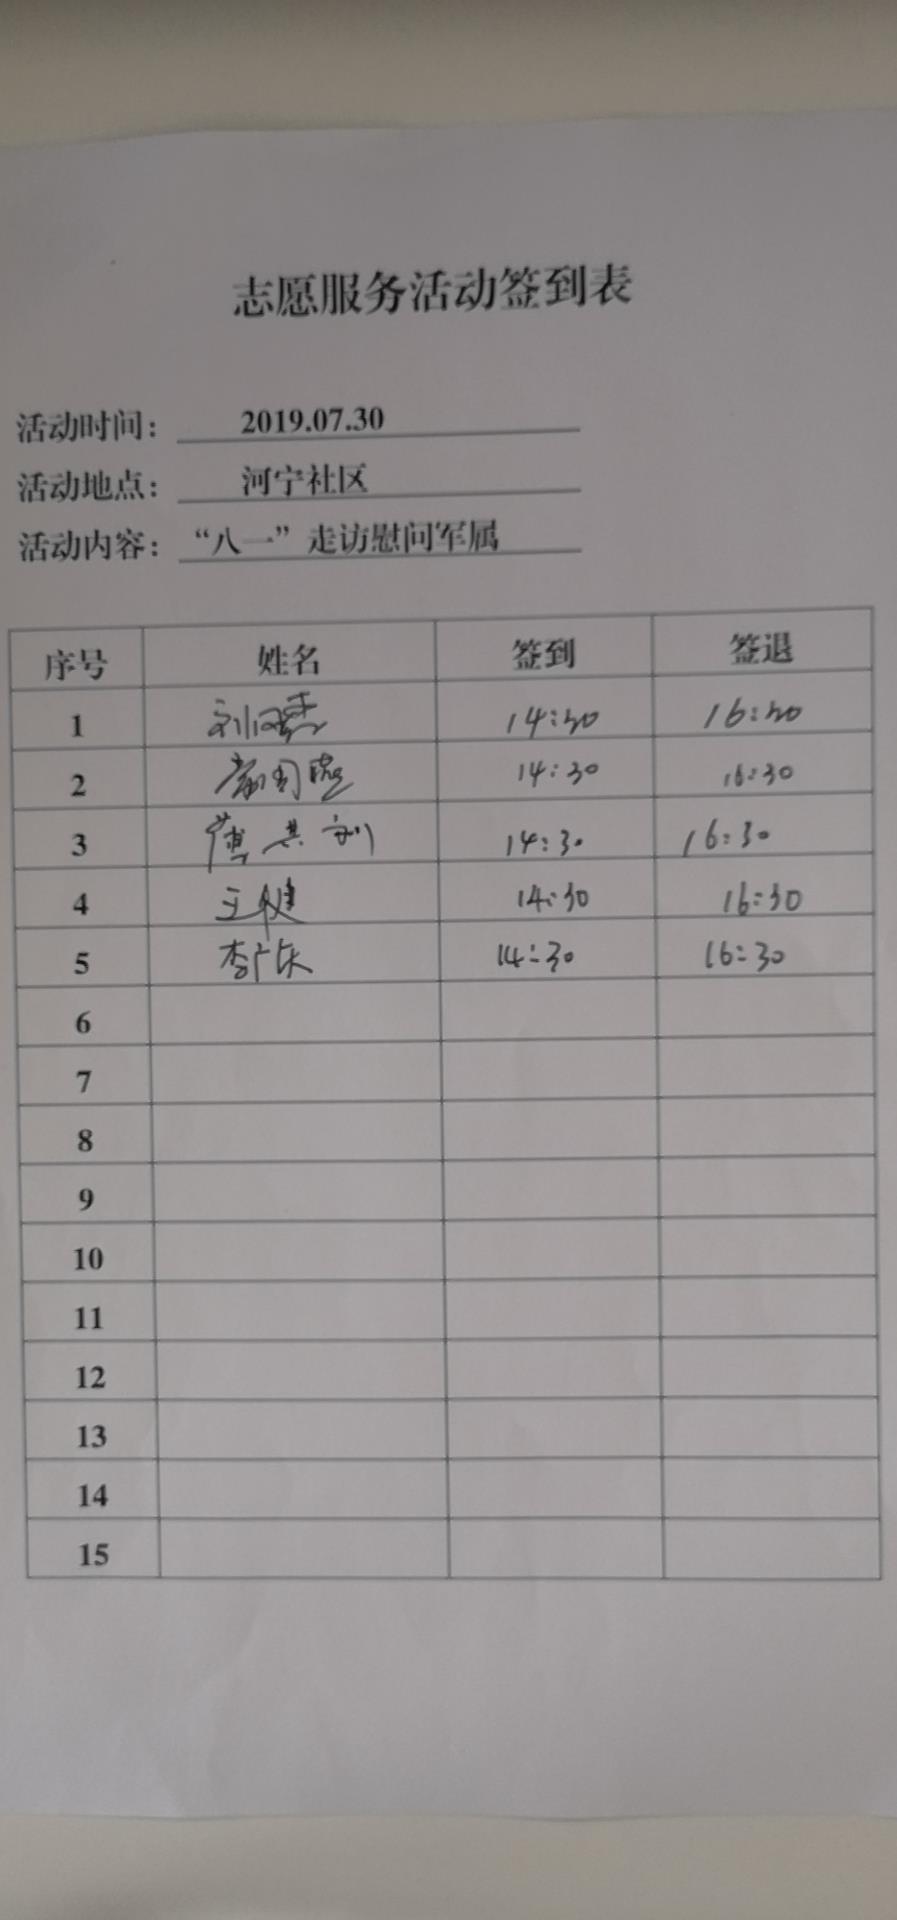 志愿服务活动签到表
活动时间： 2019.07.30
活动地点： 河宁社区
活动内容： “八一”走访慰问军属
序号 姓名 签到 签退
1 14:30 16:30
2 14:30 16:30
3 14:30 16:30
4 王健 14:30 16:30
5 李广庆 14:30 16:30
6
7
8
9
10
11
12
13
14
15